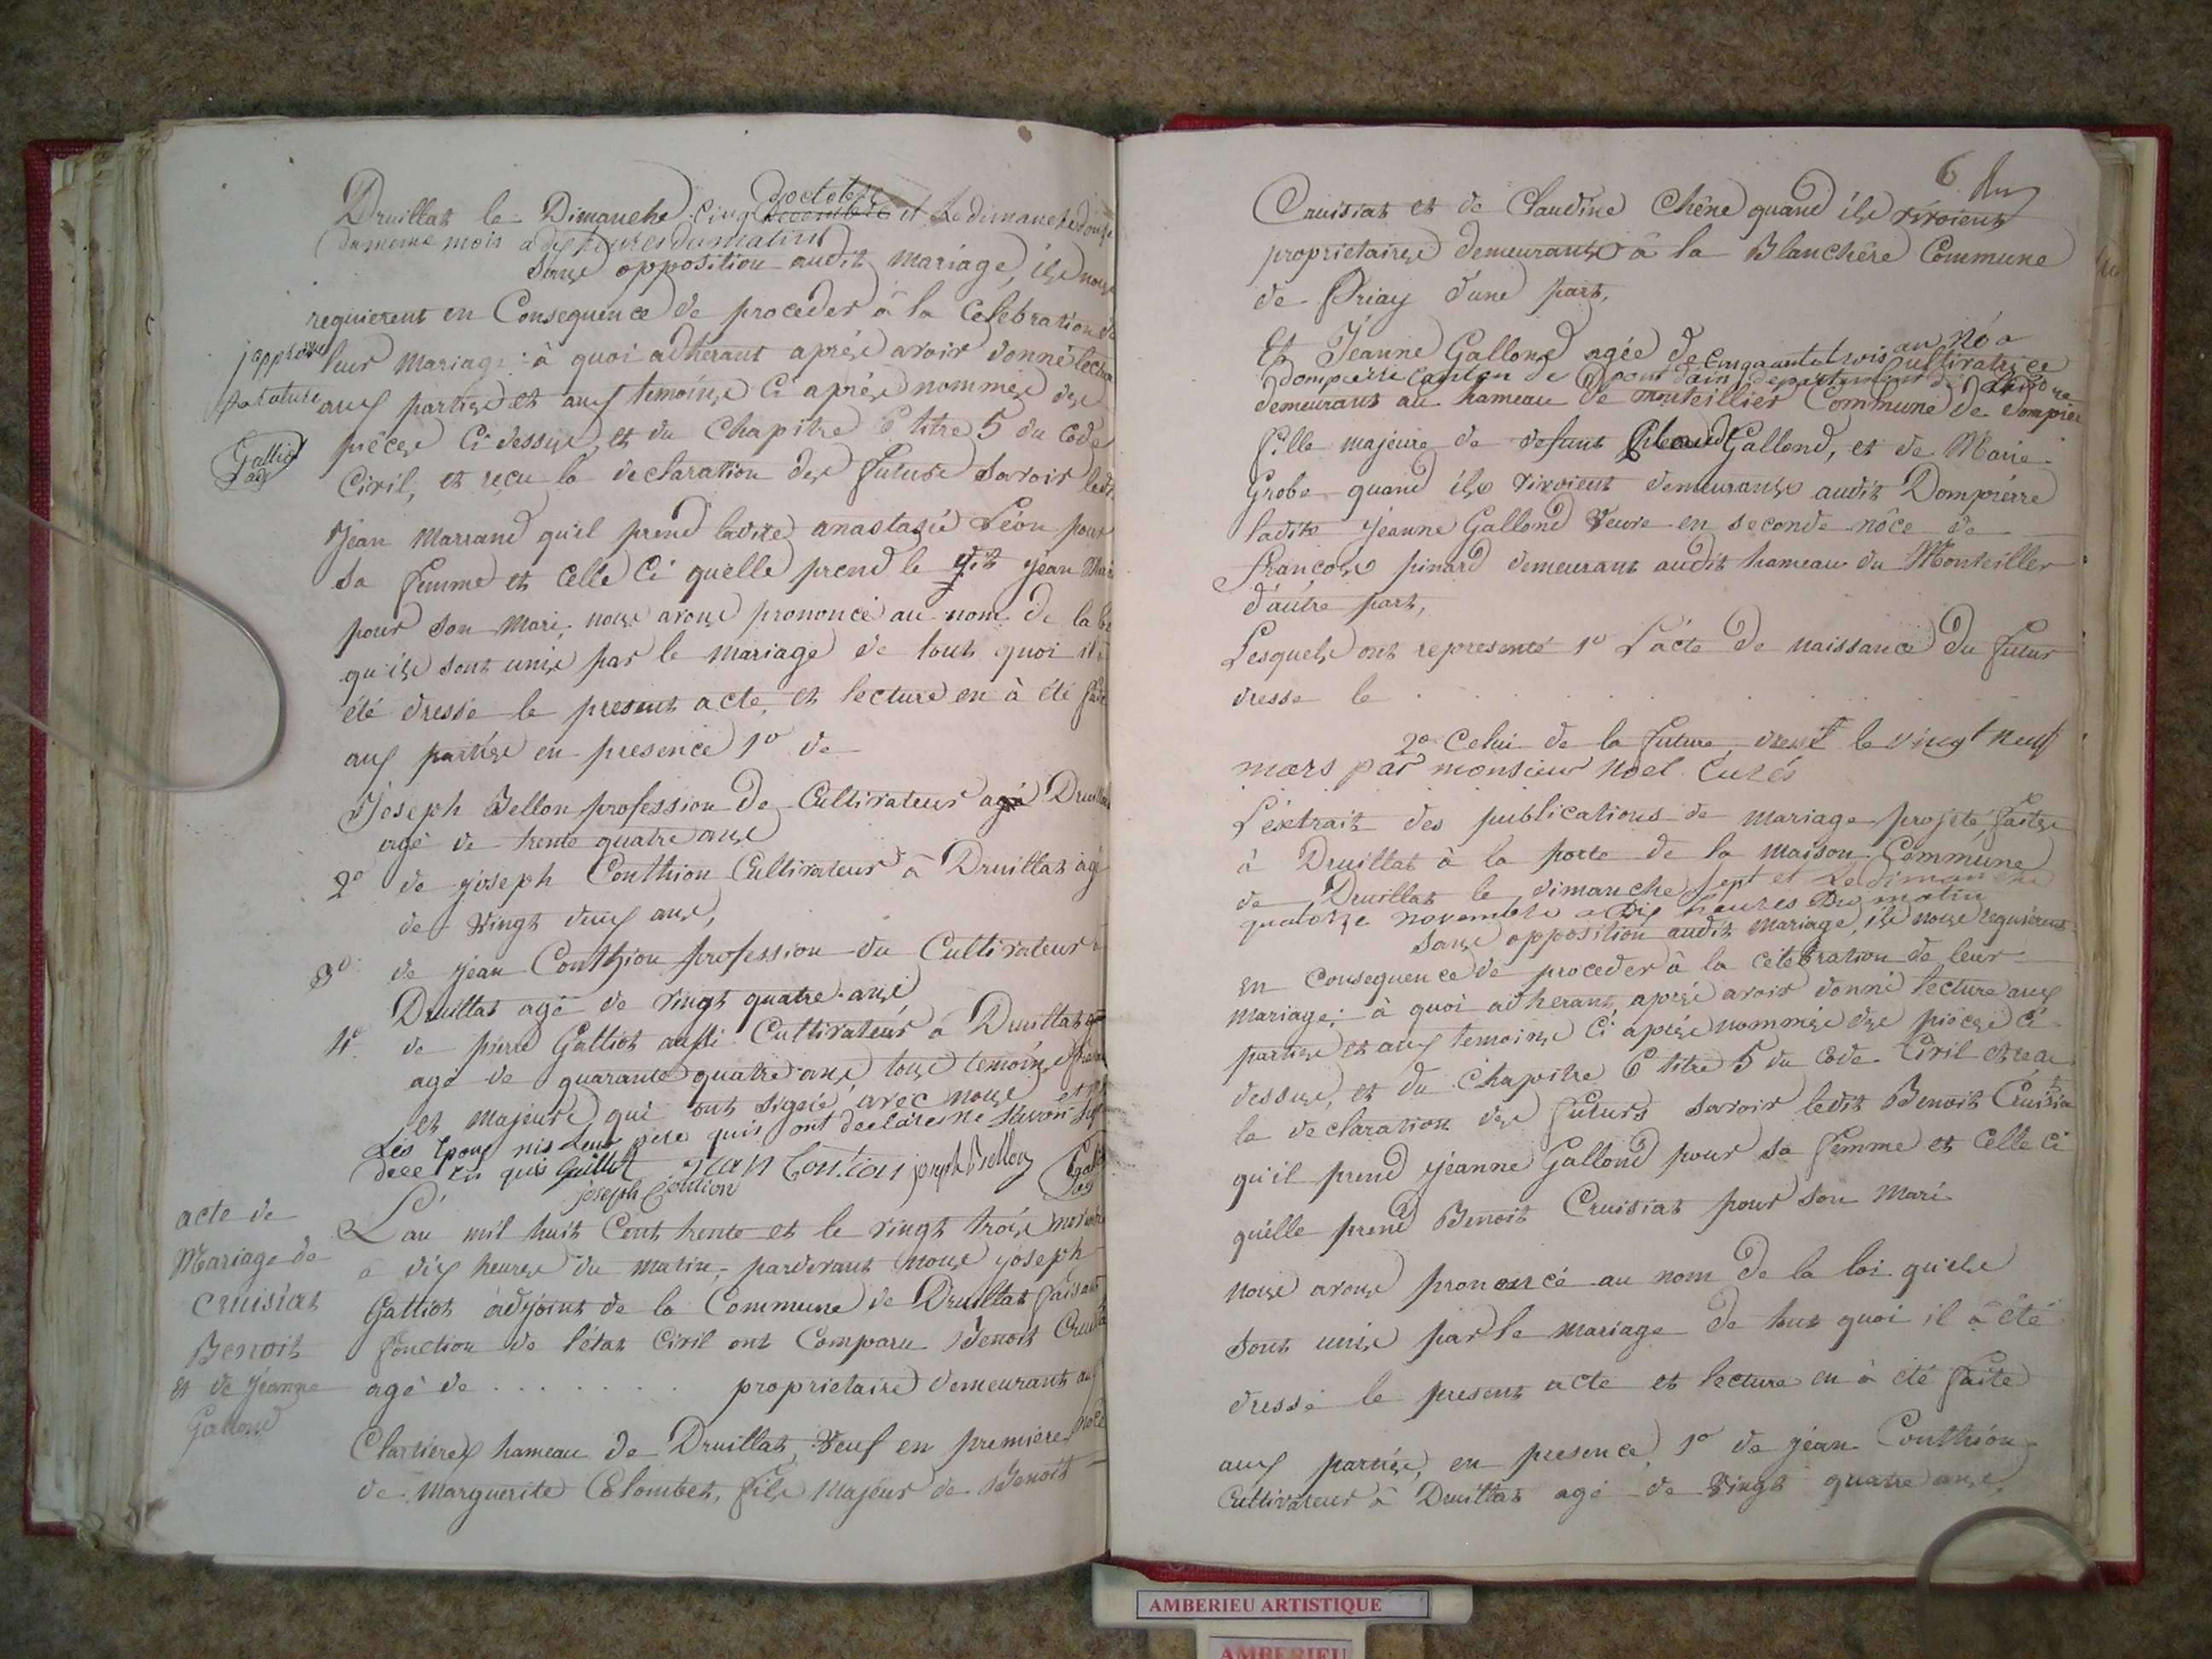 Druillat le Dimanche cinq d'octobre decembre et Le dimanche douze
du meme mois a dix heures du matin
Sans opposition audit Mariage, ils nous
requierent en Consequence de proceder à la Celebration de
leur Mariage : à quoi adherant aprés avoir donné lecture
aux parties et aux temoins Ci aprés nommés des
piéces Ci dessus, et du Chapitre 6 titre 5 du Code
Civil, et reçu la declaration des futurs Savoir ledit
Jean Marrand qu'il prend ladite anastasie Léon pour
Sa femme et Celle Ci quelle prend le dit Jean Mar
pour Son Mari, nous avons prononcé au nom de la loi
qu'ils sont unis par le mariage de tout quoi il à
été dressé le present acte, et lecture en à été faite
aux parties en presence 1º de
Joseph Bellon profession de Cultivateur agé Druillat
agé de trente quatre ans
2º de joseph Conthion Cultivateur à Druillat agé
de Vingt deux ans,
3º de jean Conthion profession du Cultivateur à
Druillat agé de vingt quatre ans
4º de pierre Galliot aussi Cultivateur à Druillat
agé de quarante quatre ans tous temoins
et majeurs qui ont signé avec nous et
Les Epoux nis Leur pere quis ont declares ne savoir
de ce en quis Guillot jean Contion joseph Bellon
joseph Contion
japprouve
la rature
Galliot
adj
acte de
Mariage de
Cruisiat
Benoit
et de jeanne
Gallond
L'an mil huit Cent trente et le vingt trois novembre
à dix heures du matin, pardevant nous joseph
Galliot adjoint de la Commune de Druillat faisant
fonction de l'état Civil ont Comparu Benoit Cruisiat
agé de . . . . . . . . propriétaire demeurant aux
Clartiéres hameau de Druillat, Veuf en premiére noce
de Marguerite Colombet, fils Majeur de Benoit
6
Cruisiat et de Claudine Chêne quand ils vivoient
proprietaires demeurants à la Blanchère Commune
de Priay d'une part,
Et Jeanne Gallond agée de cinquante trois an né a
dompierre canton de pont dain departement de Cultivatrice
demeurant au hameau de monteillier Commune de Dompier
fille majeure de defunt Gallond, et de Marie
Grobe quand ils vivoient demeurants audit Dompierre
ladite Jeanne Gallond Veuve en seconde nôce de
François pinard demeurant audit hameau du Monteiller
d'autre part,
Lesquels ont representé 1º L'acte de naissance du futur
dressé le . . . . . . . . .
2º Celui de la future, dressé le vingt neuf
mars par monsieur Noel Curés
L'éxtrait des publications de mariage projeté, faites
à Druillat à la porte de la Maison Commune
de Druillat le dimanche sept et Le dimanche
quatorze novembre a Dix heures Du matin
Sans opposition audit Mariage, ils nous requiérent
en Consequence de proceder à la celebration de leur
Mariage; à quoi adherant aprés avoir donné lecture aux
parties et aux temoins Ci aprés nommés des piéces Ci
dessus, et du Chapitre 6 titre 5 du Code Civil et reçu
la declaration des futurs Savoir ledit Benoit Cruisia
qu'il prend Jeanne Gallond pour Sa femme et Celle Ci
qu'elle prend Benoit Cruisiat pour Son Mari
nous avons prononcé au nom de la loi qu'ils
Sont unis par le mariage de tout quoi il à été
dressé le present acte et lecture en à été faite
aux parties, en presence, 1º de jean Conthion
Cultivateur à Druillat agé de Vingt quatre ans,
AMBERIEU ARTISTIQUE
AMBERIEU